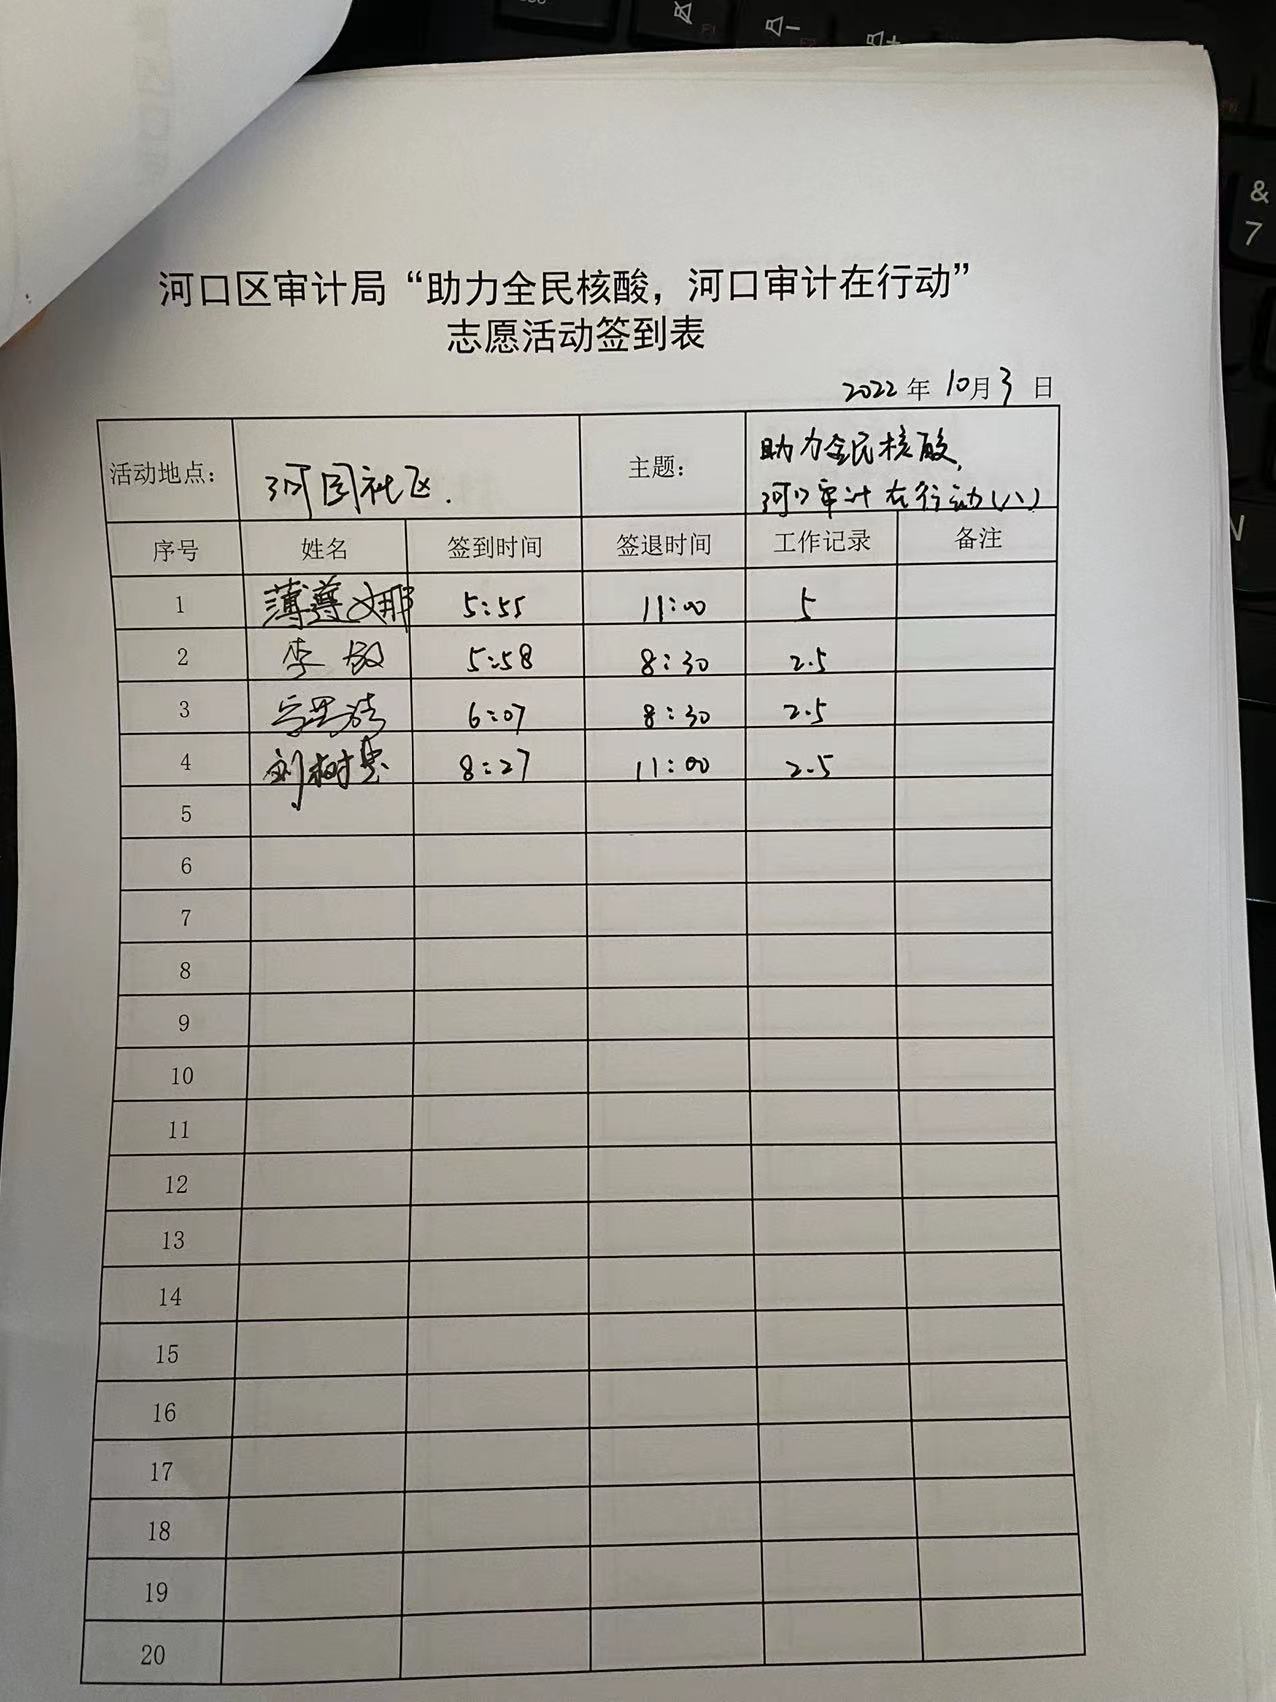 河口区审计局“助力全民核酸，河口审计在行动”
志愿活动签到表
2022年10月3日
活动地点： 河园社区. 主题： 助力全民核酸，
河口审计在行动(八)
序号 姓名 签到时间 签退时间 工作记录 备注
1 薄尊娜 5:55 11:00 5
2 李敏 5:58 8:30 2.5
3 6:07 8:30 2.5
4 刘树 8:27 11:00 2.5
5
6
7
8
9
10
11
12
13
14
15
16
17
18
19
20
&
7
N
F1